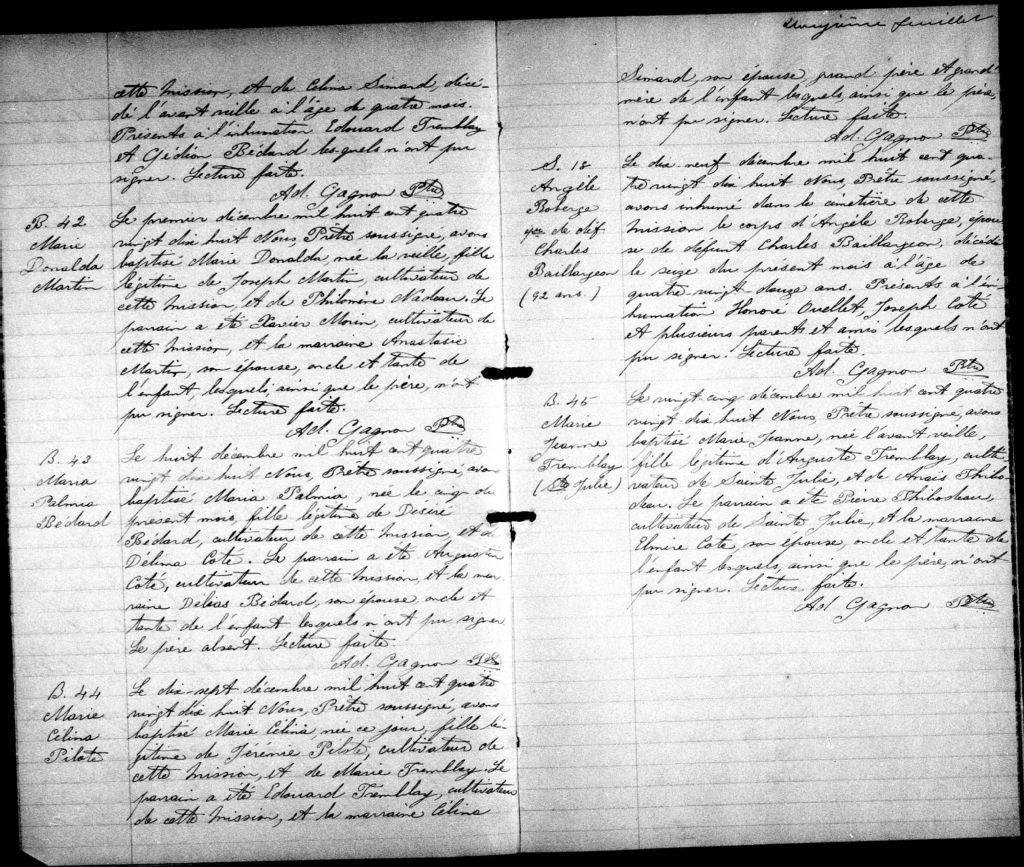 cette mission, et de Célina Simard, décé-
dé l'avant veille à l'âge de quatre mois.
Présents à l'inhumation Edouard Tremblay
et Gédéon Bédard lesquels n'ont pu
signer. Lecture faite.
Ad. Gagnon Ptre
B. 42
Marie
Donalda
Martin
Le premier décembre mil huit cent quatre
vingt dix huit Nous, Prêtre soussigné, avons
baptisé Marie Donalda, née la veille, fille
légitime de Joseph Martin, cultivateur de
cette mission, et de Philomène Nadeau. Le
parrain a été Xavier Morin, cultivateur de
cette mission, et la marraine Anastasie
Martin, son épouse, oncle et tante de
l'enfant, lesquels ainsi que le père, n'ont
pu signer. Lecture faite.
Ad. Gagnon Ptre
B. 43
Maria
Palmia
Bédard
Le huit décembre mil huit cent quatre
vingt dix huit Nous, Prêtre soussigné, avons
baptisé Maria Palmia, née le cinq du
présent mois, fille légitime de Desiré
Bédard, cultivateur de cette mission, et de
Délima Coté. Le parrain a été Augustin
Coté, cultivateur de cette mission, et la mar-
raine Bédard, son épouse, oncle et
tante de l'enfant lesquels n'ont pu signer
Le père absent. Lecture faite.
Ad. Gagnon Ptre
B. 44
Marie
Célina
Pilote
Le dix-sept décembre mil huit cent quatre
vingt dix huit Nous, Prêtre soussigné, avons
baptisé Marie Célina, née ce jour, fille lé-
gitime de Jérémie Pilote, cultivateur de
cette mission, et de Marie Tremblay. Le
parrain a été Edouard Tremblay, cultivateur
de cette mission, et la marraine Célina
feuillet
Simard, son épouse, grand père et grand'
mère de l'enfant lesquels, ainsi que le père,
n'ont pu signer. Lecture faite.
Ad. Gagnon Ptre
S. 18
Angèle
Roberge
de déf.
Charles
Baillargeon
(92 ans.)
Le dix neuf décembre mil huit cent qua-
tre vingt dix huit Nous, Prêtre soussigné,
avons inhumé dans le cimetière de cette
mission le corps d'Angèle Roberge, épou-
se de defunt Charles Baillargeon, décédée
le seize du présent mois à l'âge de
quatre vingt douze ans. Présents à l'in-
humation Honoré Ouellet, Joseph Coté
et plusieurs parents et amis lesquels n'ont
pu signer. Lecture faite.
Ad. Gagnon Ptre
B. 45
Marie
Jeanne
Tremblay
(Ste Julie)
Le vingt cinq décembre mil huit cent quatre
vingt dix huit Nous, Prêtre soussigné, avons
baptisé Marie Jeanne, née l'avant veille,
fille légitime d'Auguste Tremblay, culti-
vateur de Sainte Julie, et de Anaïs Thibo-
deau. Le parrain a été Pierre Thibodeau,
cultivateur de Sainte Julie, et la marraine
Elmire Coté, son épouse, oncle et tante de
l'enfant lesquels, ainsi que le père, n'ont
pu signer. Lecture faite.
Ad. Gagnon Ptre